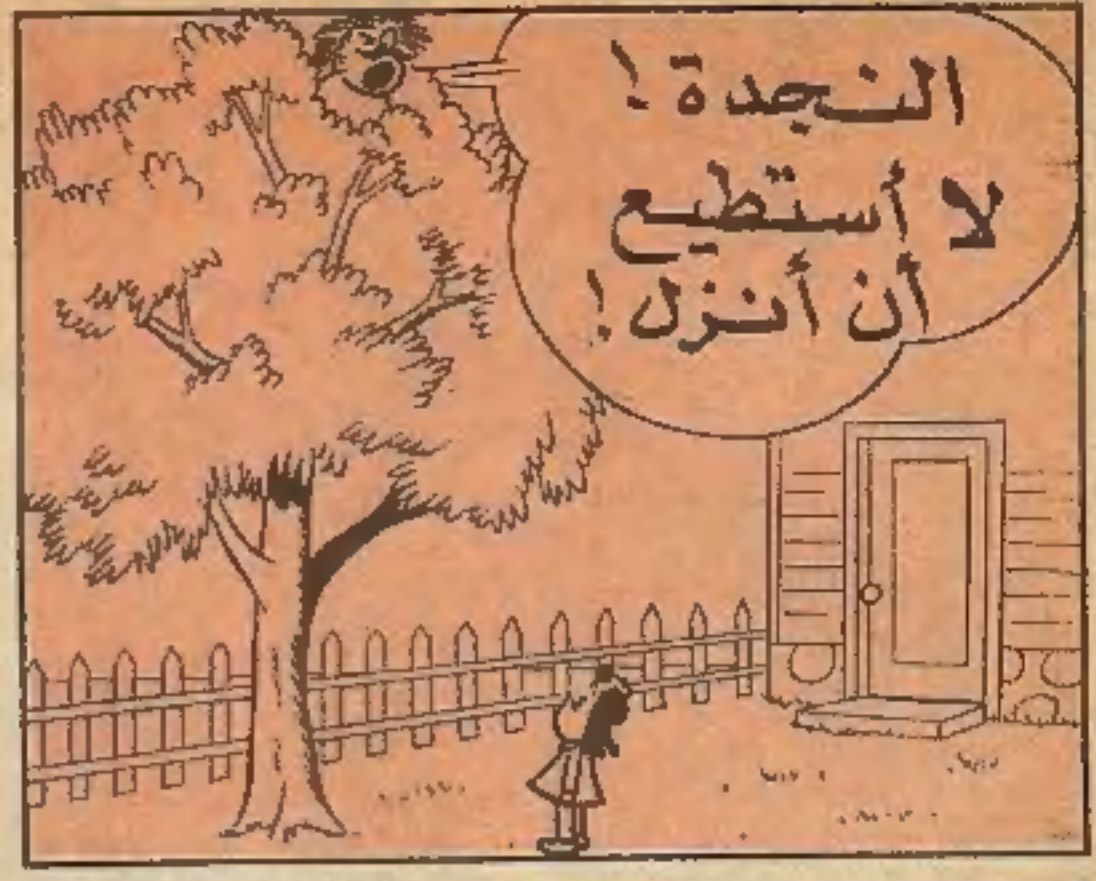 النجدة!
لا أستطيع
أن أنزل!